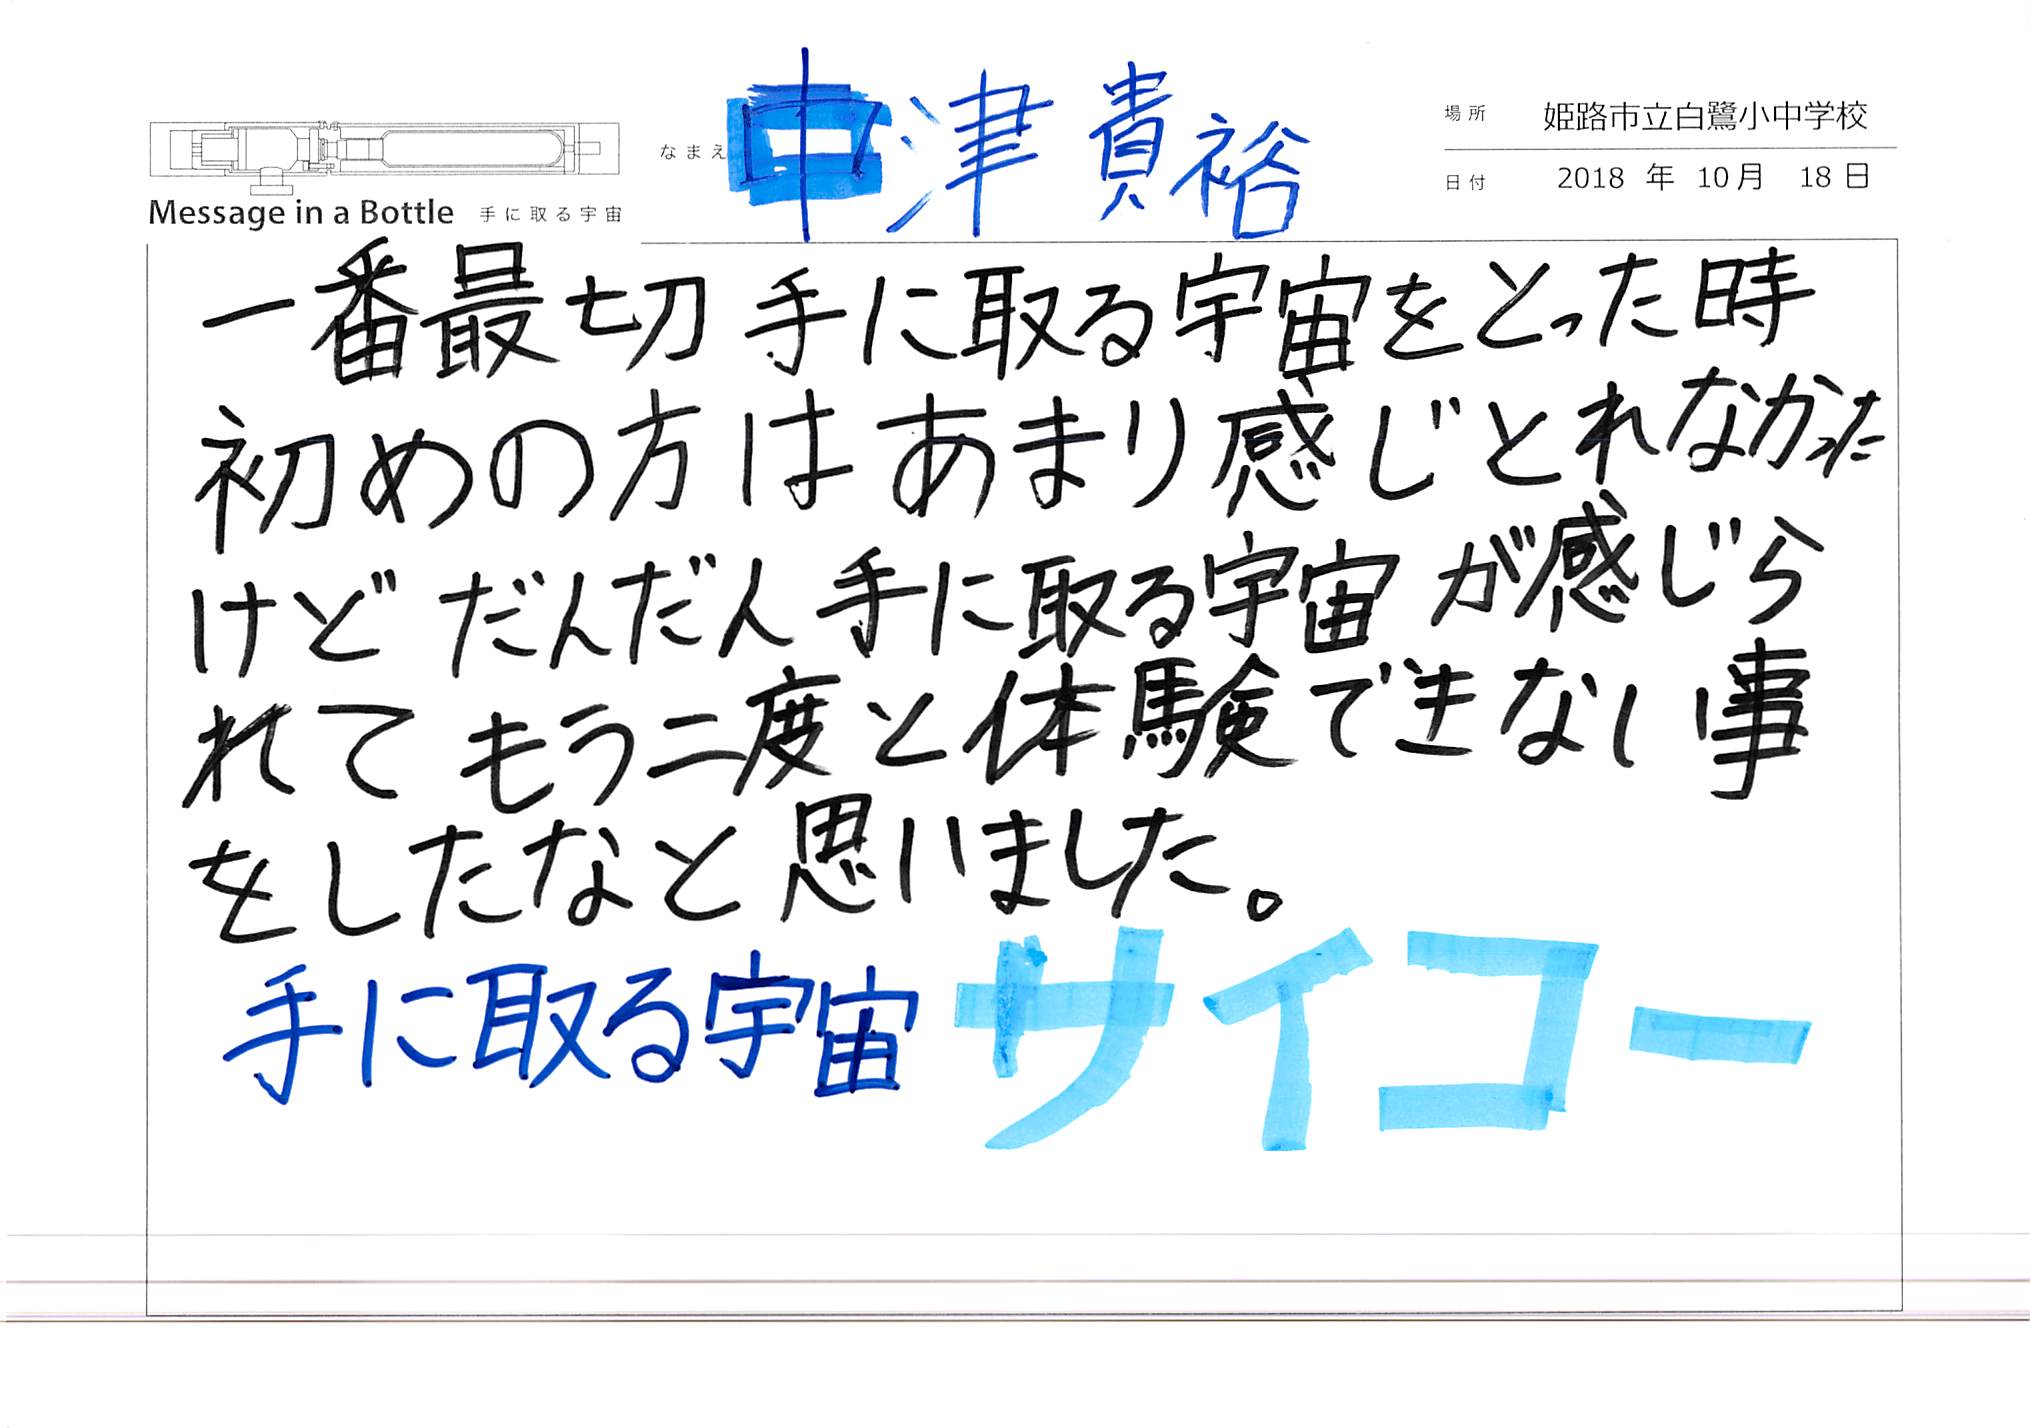 なまえ 中津貴裕
場所 姫路市立白鷺小中学校
日付 2018 年 10月 18日
Message in a Bottle 手に取る宇宙
一番最切 手に取る宇宙をとった時
初めの方は あまり感じとれなかった
けど だんだん 手に取る宇宙 が感じら
れて もう二度と体験できない事
をしたなと思いました。
手に取る宇宙 サイコー